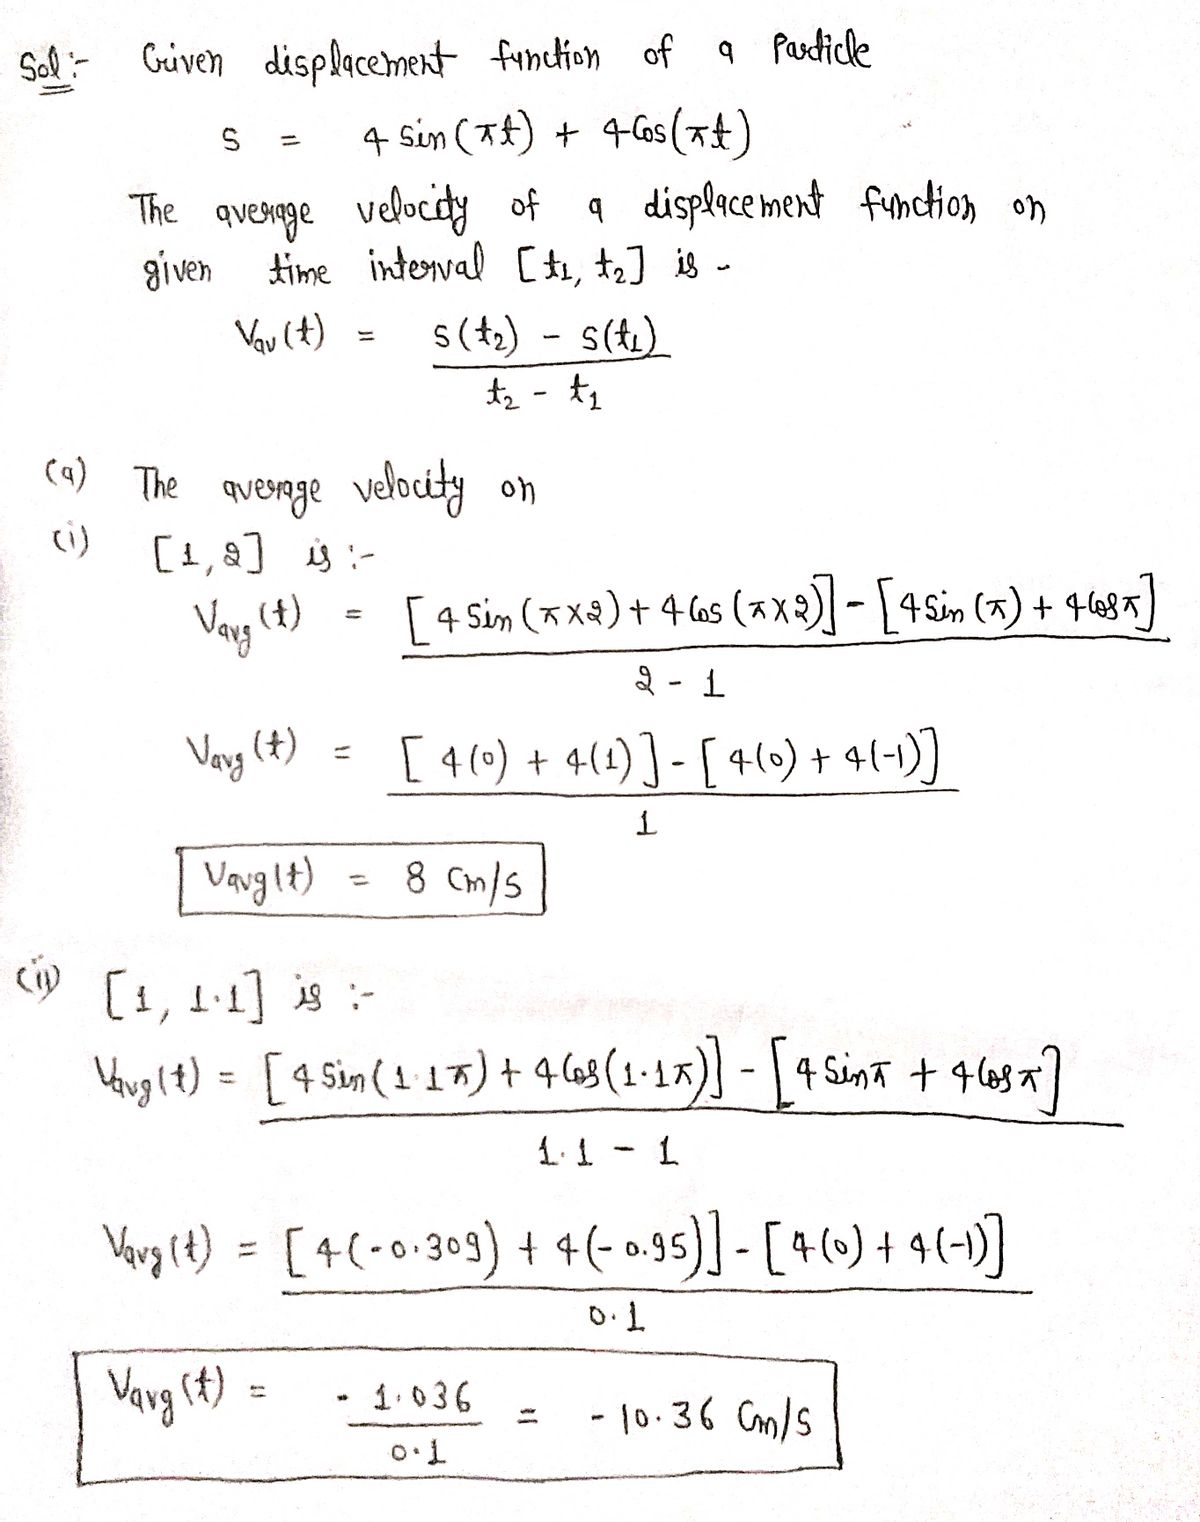 Sol:- Given displacement function of a Particle
S = 4 Sin(πt) + 4 Cos(πt)
The average velocity of a displacement function on
given time interval [t1, t2] is -
Vav(t) = S(t2) - S(t1)
t2 - t1
(a) The average velocity on
(i) [1,2] is :-
Vavg(t) = [4 Sin(π×2) + 4 Cos(π×2)] - [4 Sin(π) + 4 Cosπ]
2 - 1
Vavg(t) = [4(0) + 4(1)] - [4(0) + 4(-1)]
1
Vavg(t) = 8 Cm/s
(ii) [1, 1.1] is :-
Vavg(t) = [4 Sin(1.1π) + 4 Cos(1.1π)] - [4 Sinπ + 4 Cosπ]
1.1 - 1
Vavg(t) = [4(-0.309) + 4(-0.95)] - [4(0) + 4(-1)]
0.1
Vavg(t) = - 1.036 = -10.36 Cm/s
0.1